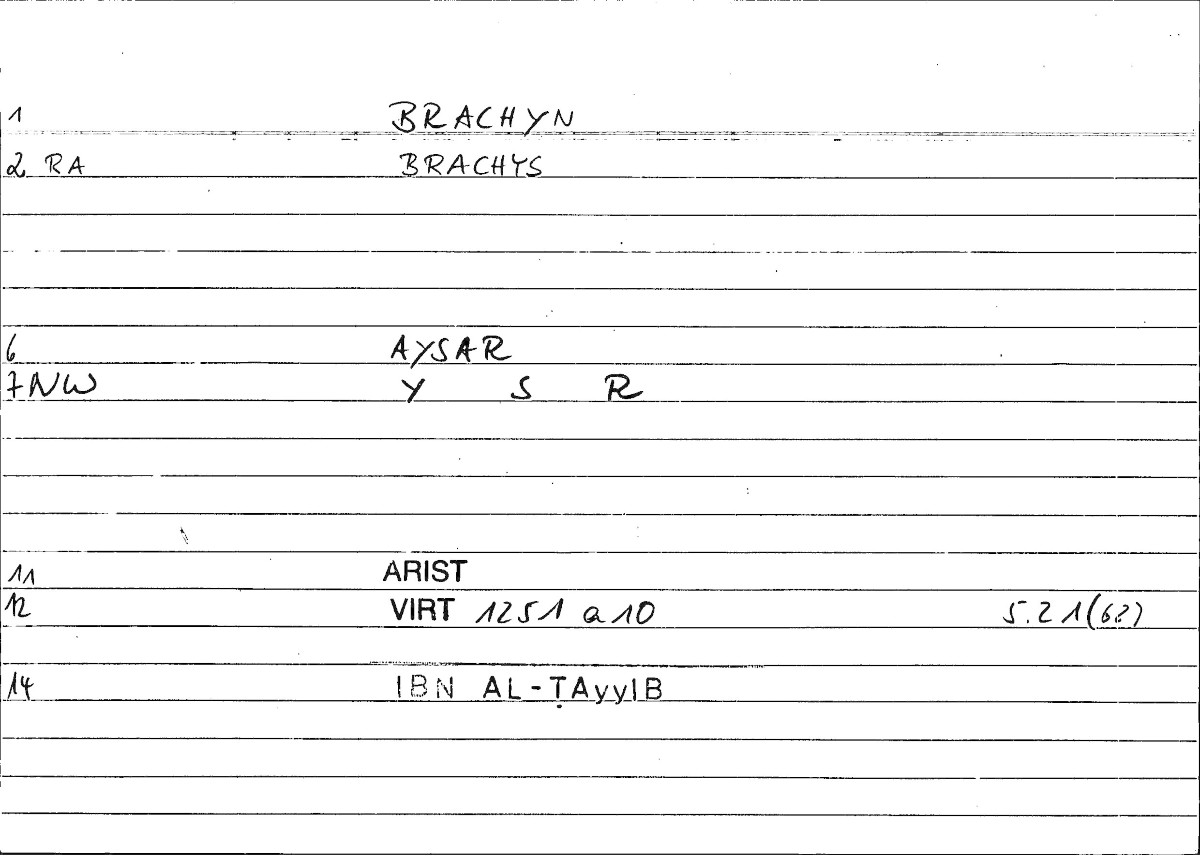 1 BRACHYN
2 RA BRACHYS
6 AYSAR
7 NW Y S R
11 ARIST
12 VIRT 1251 a 10 5.21(62)
14 IBN AL-ṬAyyIB